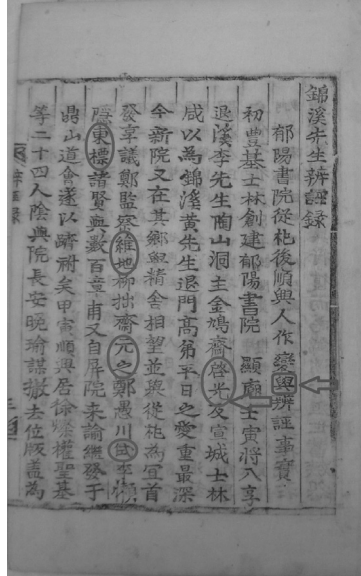 錦溪先生辨誣錄
郁陽書院從祀後順興人作變與辨誣事實
初豊基士林創建郁陽書院 顯廟壬寅將入享
退溪李先生陶山洞主金鳩齋啓光及宣城士林
咸以爲錦溪黃先生退門高弟平日之愛重最深
今新院又在其鄉與精舍相望並與從祀爲宜首
發享議鄭監察維地柳拙齋元之鄭愚川侙李懶
隱東標諸賢與數百章甫又自屏院來論繼發于
鼎山道會遂以躋祔矣甲寅順興居徐權聖基
等二十四人陰與院長安晚瑜謀撤去位版盖爲